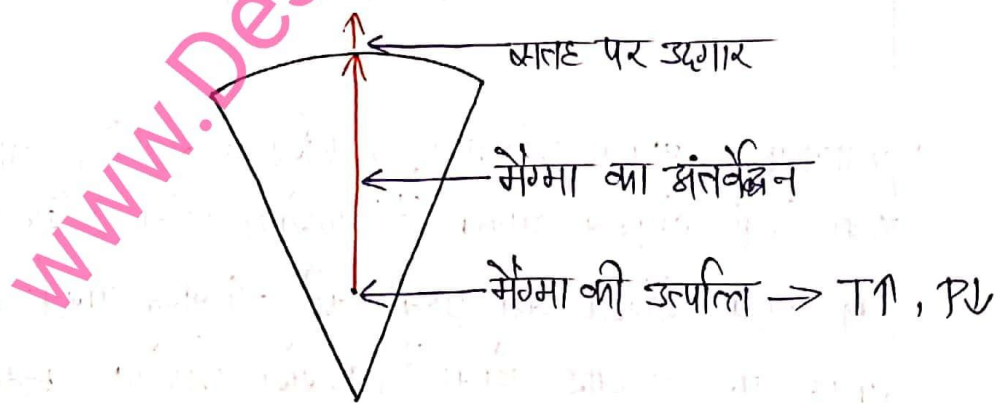 www.De
सतह पर उदगार
मैग्मा का अंतर्वेधन
मैग्मा की उत्पत्ति → T↑, P↓